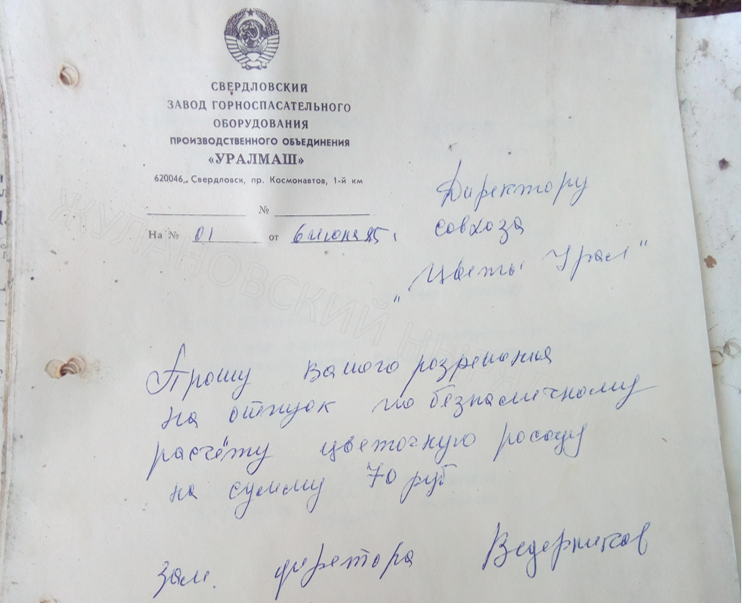 СВЕРДЛОВСКИЙ
ЗАВОД ГОРНОСПАСАТЕЛЬНОГО
ОБОРУДОВАНИЯ
ПРОИЗВОДСТВЕННОГО ОБЪЕДИНЕНИЯ
«УРАЛМАШ»
620046, Свердловск, пр. Космонавтов, 1-й км
№
На № 01 от 6 июня 85 г
Директору
совхоза
„Цветы Урал"
Прошу вашого розрешания
на отпуск по безналичному
расчёту цветочную росаду
на сумму 70 руб
Зам. директора Ведерников